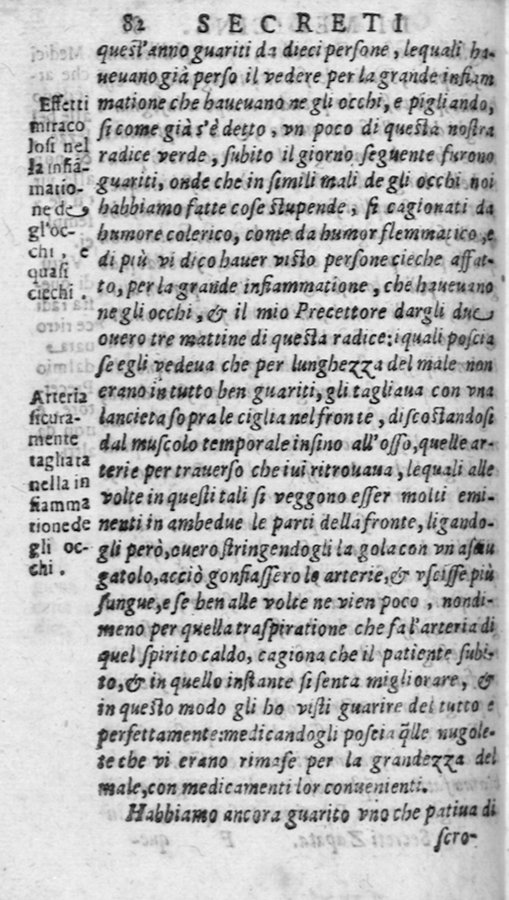 82 SECRETI
quest'anno guariti da dieci persone, lequali ha-
ueuano già perso il vedere per la grande infiam
matione che haueuano ne gli occhi, e pigliando,
si come già s'è detto, vn poco di questa nostra
radice verde, subito il giorno seguente furono
guariti, onde che in simili mali de gli occhi noi
habbiamo fatte cose stupende, si cagionati da
humore colerico, come da humor flemmatico, e
di più vi dico hauer visto persone cieche affat-
to, per la grande infiammatione, che haueuano
ne gli occhi, & il mio Precettore dargli due
ouero tre mattine di questa radice: i quali poscia
se egli vedeua che per lunghezza del male non
erano in tutto ben guariti, gli tagliaua con vna
lancieta sopra le ciglia nel fronte, discostandosi
dal muscolo temporale insino all'osso, quelle ar-
terie per trauerso che iui ritrouaua, lequali alle
volte in questi tali si veggono esser molti emi-
nenti in ambedue le parti della fronte, ligando-
gli però, ouero stringendogli la gola con vn asciu
gatolo, acciò gonfiassero le arterie, & vscisse più
sangue, e se ben alle volte ne vien poco, nondi-
meno per quella traspiratione che fa l'arteria di
quel spirito caldo, cagiona che il patiente subi-
to, & in quello instante si senta migliorare, &
in questo modo gli ho visti guarire del tutto e
perfettamente: medicandogli poscia q̃lle nugole-
te che vi erano rimase per la grandezza del
male, con medicamenti lor conuenienti.
Habbiamo ancora guarito vno che patiua di
scro-
Effetti
miraco
losi nel
la infiã-
matio-
ne de
gl'oc-
chi, e
quasi
ciechi.
Arteria
sicura-
mente
tagliata
nella in
fiamma
tione de
gli oc-
chi.